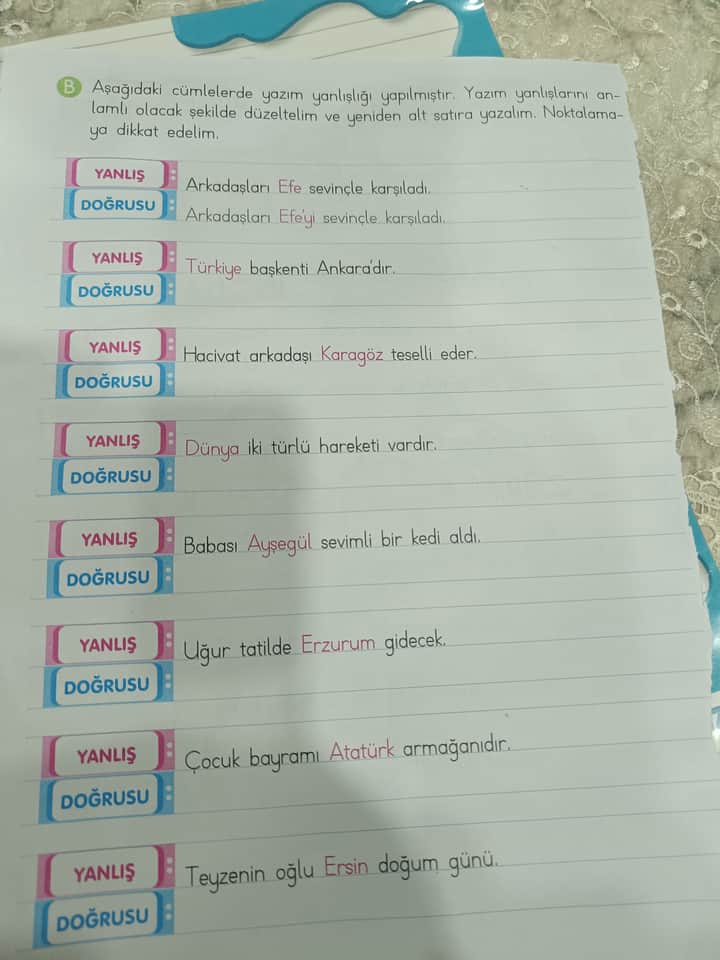 B Aşağıdaki cümlelerde yazım yanlışlığı yapılmıştır. Yazım yanlışlarını an-
lamlı olacak şekilde düzeltelim ve yeniden alt satıra yazalım. Noktalama-
ya dikkat edelim.
YANLIŞ Arkadaşları Efe sevinçle karşıladı.
DOĞRUSU Arkadaşları Efe'yi sevinçle karşıladı.
YANLIŞ Türkiye başkenti Ankara'dır.
DOĞRUSU
YANLIŞ Hacivat arkadaşı Karagöz teselli eder.
DOĞRUSU
YANLIŞ Dünya iki türlü hareketi vardır.
DOĞRUSU
YANLIŞ Babası Ayşegül sevimli bir kedi aldı.
DOĞRUSU
YANLIŞ Uğur tatilde Erzurum gidecek.
DOĞRUSU
YANLIŞ Çocuk bayramı Atatürk armağanıdır.
DOĞRUSU
YANLIŞ Teyzenin oğlu Ersin doğum günü.
DOĞRUSU